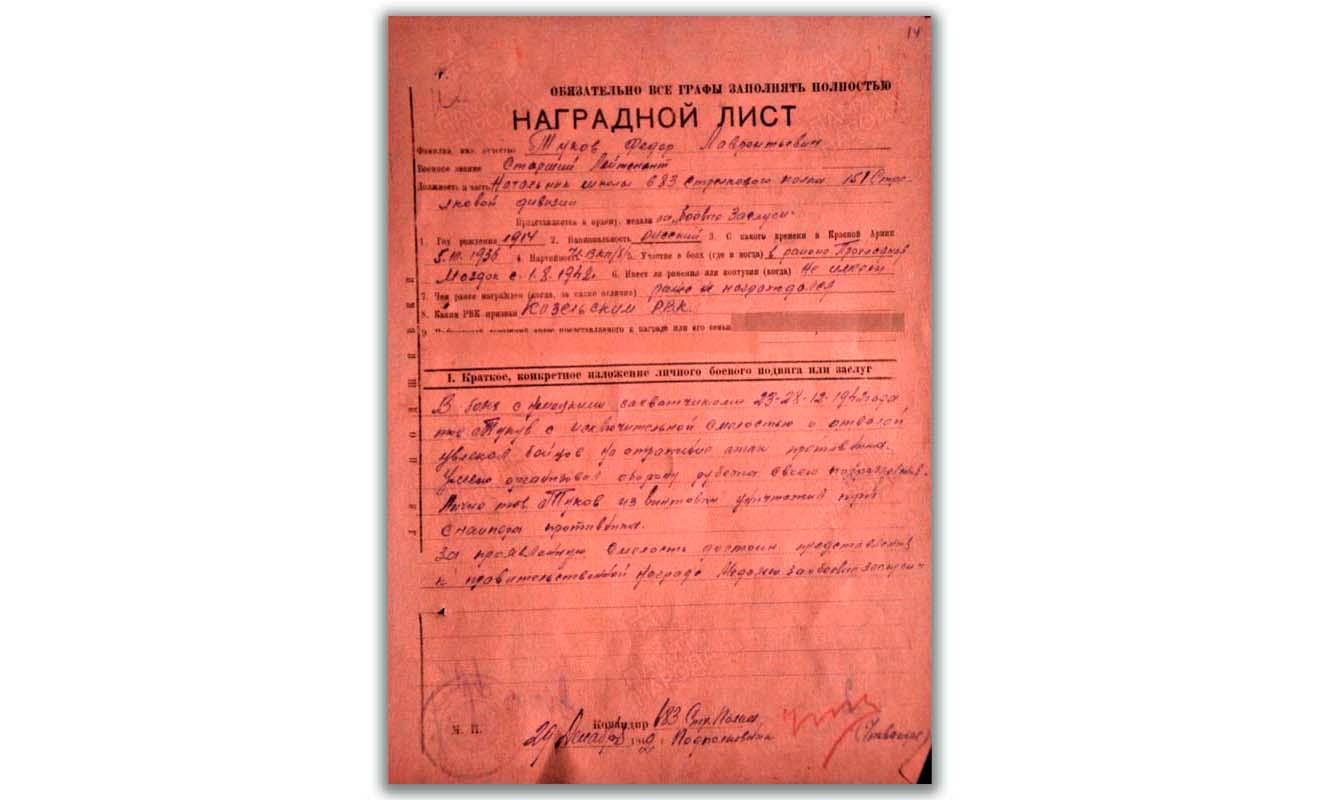 14
ОБЯЗАТЕЛЬНО ВСЕ ГРАФЫ ЗАПОЛНЯТЬ ПОЛНОСТЬЮ
НАГРАДНОЙ ЛИСТ
Фамилия, имя, отчество Туков Федор Лаврентьевич
Военное звание Старший Лейтенант
Должность и часть Начальник школы 683 стрелкового полка 151 Стре-
лковой дивизии
Представляется к ордену, медали за "боевые Заслуги"
1. Год рождения 1914 2. Национальность русский 3. С какого времени в Красной Армии
5.III.1936 4. Партийность ВКП(б) 5. Участие в боях (где и когда) в районе
Моздок с 1.8.1942г 6. Имеет ли ранения или контузии (когда) не имеет
7. Чем ранее награжден (когда, за какие отличия) ранее не награждался
8. Каким РВК призван Козельским РВК.
9
I. Краткое, конкретное изложение личного боевого подвига или заслуг
В боях с немецкими захватчиками 23-28-12-1942 года
тов Туков с исключительной смелостью и отвагой
увлекал бойцов на отражение атак противника.
Умело организовал оборону рубежа своего подразделения.
Лично тов Туков из винтовки уничтожил
снайпера противника.
За проявленную смелость достоин представления
к правительственной награде Медали за боевые заслуги
Командир 683 Стр. Полка
М. П. 29 Декабря 1942 г. Подполковник